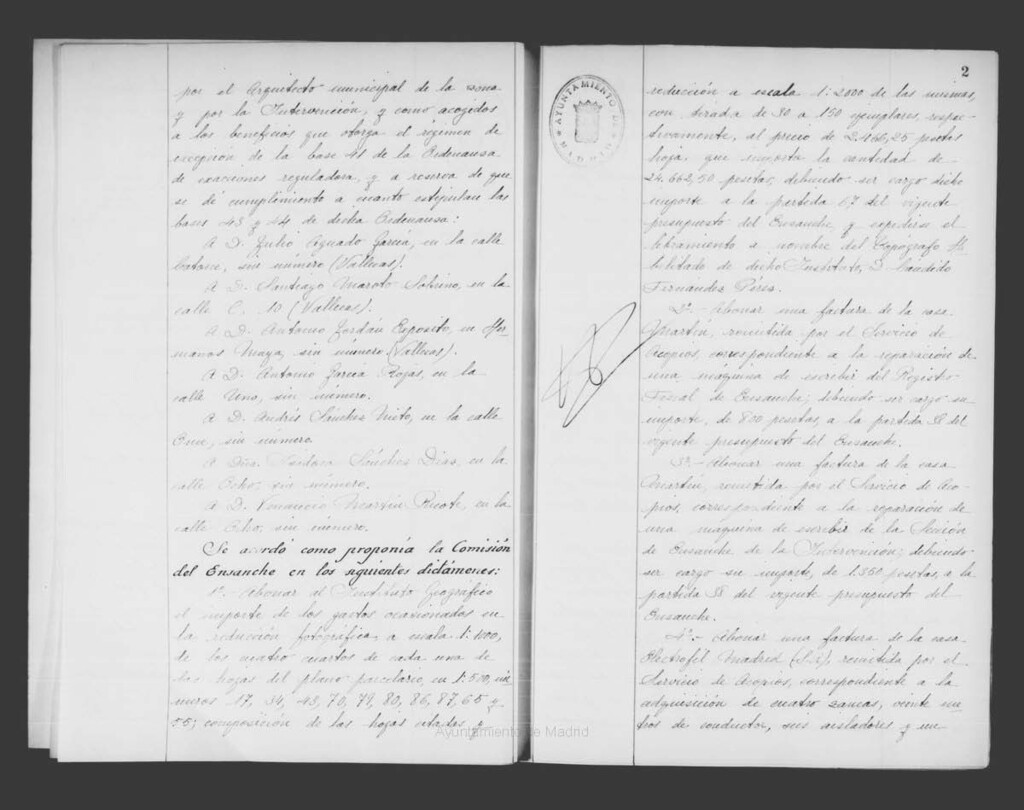 por el Arquitecto municipal de la zona
y por la Intervención, y como acogidos
a los beneficios que otorga el régimen de
excepción de la base 41 de la Ordenanza
de exacciones reguladora, y a reserva de que
se dé cumplimiento a cuanto estipulan las
bases 43 y 44 de dicha Ordenanza:
A D. Julio Aguado García, en la calle
sin número (Vallecas).
A D. Santiago Maroto Sobrino, en la
calle C. 10 (Vallecas).
A D. Antonio Jordán Expósito, en Her-
manos Moya, sin número (Vallecas).
A D. Antonio García Rojas, en la
calle Uno, sin número.
A D. Andrés Sánchez Nieto, en la calle
sin número.
A Dña. Isidora Sánchez Díaz, en la
calle Ocho, sin número.
A D. Venancio Martín Ricote, en la
calle Ocho, sin número.
Se acordó como proponía la Comisión
del Ensanche en los siguientes dictámenes:
1º.- Abonar al Instituto Geográfico
el importe de los gastos ocasionados en
la reducción fotográfica, a escala
de los cuatro cuartos de cada una de
las hojas del plano parcelario, en 1:500, nú-
meros 17, 34, 43, 70, 79, 80, 86, 87, 65 y
55; composición de las hojas citadas y
2
AYUNTAMIENTO DE
MADRID
reducción a escala 1:2000 de las mismas,
con tirada de 30 a 150 ejemplares, respec-
tivamente, al precio de 2.466,25 pesetas
hoja, que importa la cantidad de
24.662,50 pesetas, debiendo ser cargo dicho
importe a la partida 67 del vigente
presupuesto del Ensanche, y expedirse el
libramiento a nombre del Topógrafo Ha-
bilitado de dicho Instituto, D. Cándido
Fernández Pérez.
2º.- Abonar una factura de la casa
Martín, remitida por el Servicio de
Acopios, correspondiente a la reparación de
una máquina de escribir del Registro
Fiscal de Ensanche; debiendo ser cargo su
importe, de 800 pesetas, a la partida del
vigente presupuesto del Ensanche.
3º.- Abonar una factura de la casa
Martín, remitida por el Servicio de Aco-
pios, correspondiente a la reparación de
una máquina de escribir de la Sección
de Ensanche de la Intervención; debiendo
ser cargo su importe, de 1.350 pesetas, a la
partida del vigente presupuesto del
Ensanche.
4º.- Abonar una factura de la casa
Electrofil Madrid (S.L.), remitida por el
Servicio de Acopios, correspondiente a la
adquisición de cuatro zancas, veinte me-
tros de conductor, seis aisladores y un
Ayuntamiento de Madrid